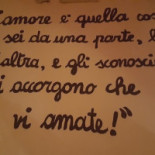 l'amore è quella cos
sei da una parte, l
altra, e gli sconosci
si accorgono che
vi amate!"